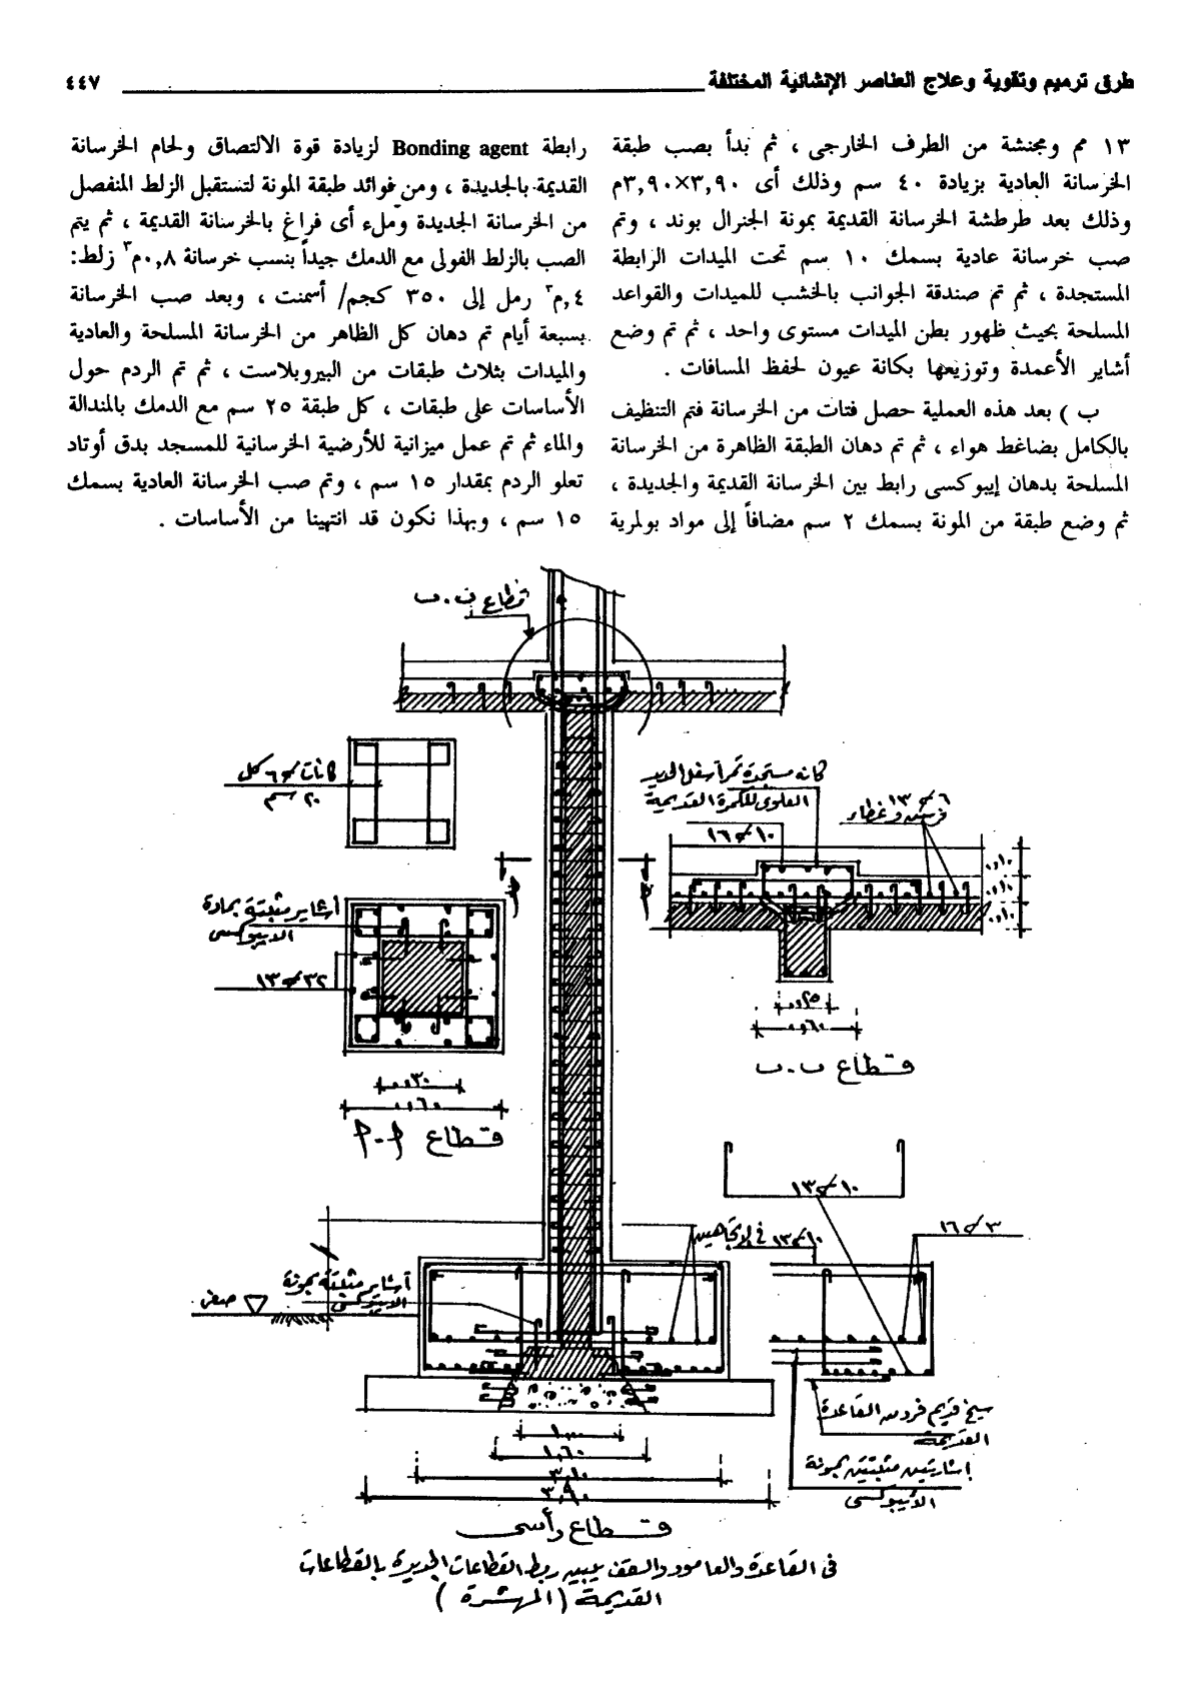 طرق ترميم وتقوية وعلاج العناصر الإنشائية المختلفة
٤٤٧
١٣ مم ومجنشة من الطرف الخارجى ، ثم بدأ بصب طبقة
الخرسانة العادية بزيادة ٤٠ سم وذلك أى ٣,٩٠×٣,٩٠م
وذلك بعد طرطشة الخرسانة القديمة بمونة الجنرال بوند ، وتم
صب خرسانة عادية بسمك ١٠ سم تحت الميدات الرابطة
المستجدة ، ثم تم صندقة الجوانب بالخشب للميدات والقواعد
المسلحة بحيث ظهور بطن الميدات مستوى واحد ، ثم تم وضع
أشاير الأعمدة وتوزيعها بكانة عيون لحفظ المسافات .
ب ) بعد هذه العملية حصل فتات من الخرسانة فتم التنظيف
بالكامل بضاغط هواء ، ثم تم دهان الطبقة الظاهرة من الخرسانة
المسلحة بدهان إيبوكسى رابط بين الخرسانة القديمة والجديدة ،
ثم وضع طبقة من المونة بسمك ٢ سم مضافاً إلى مواد بولمرية
رابطة Bonding agent لزيادة قوة الالتصاق ولحام الخرسانة
القديمة بالجديدة ، ومن فوائد طبقة المونة لتستقبل الزلط المنفصل
من الخرسانة الجديدة وملء أى فراغ بالخرسانة القديمة ، ثم يتم
الصب بالزلط الفولى مع الدمك جيداً بنسب خرسانة ٠,٨م٣ زلط:
٤,م٣ رمل إلى ٣٥٠ كجم/ أسمنت ، وبعد صب الخرسانة
بسبعة أيام تم دهان كل الظاهر من الخرسانة المسلحة والعادية
والميدات بثلاث طبقات من البيروبلاست ، ثم تم الردم حول
الأساسات على طبقات ، كل طبقة ٢٥ سم مع الدمك بالمندالة
والماء ثم تم عمل ميزانية للأرضية الخرسانية للمسجد بدق أوتاد
تعلو الردم بمقدار ١٥ سم ، وتم صب الخرسانة العادية بسمك
١٥ سم ، وبهذا نكون قد انتهينا من الأساسات .
قطاع ب.ب
كانات ٦ﻡ كل
٢٠ سم
كانه مستجدة تمر أسفل الحديد
العلوى للكمرة القديمة
١٠ φ ١٦
٦ φ ١٣
فرش وغطاء
أشاير مثبتة بمادة
الايبوكسى
٣٢ φ ١٣
٠,٣٠
٠,٦٠
قطاع أ-أ
٠,٢٥
٠,٦٠
قطاع ب.ب
١٠ φ ١٣
٣ φ ١٦
١٠ φ ١٣ فى الاتجاهين
أشاير مثبتة بمونة
الايبوكسى
صفر
سيخ قديم فرش القاعدة
القديمة
اشارتين مثبتتين بمونة
الايبوكسى
١,٠٠
١,٦٠
٣,١٠
٣,٩٠
قطاع رأسى
فى القاعدة والعامود والسقف يبين ربط القطاعات الجديدة بالقطاعات
القديمة (المهشرة)